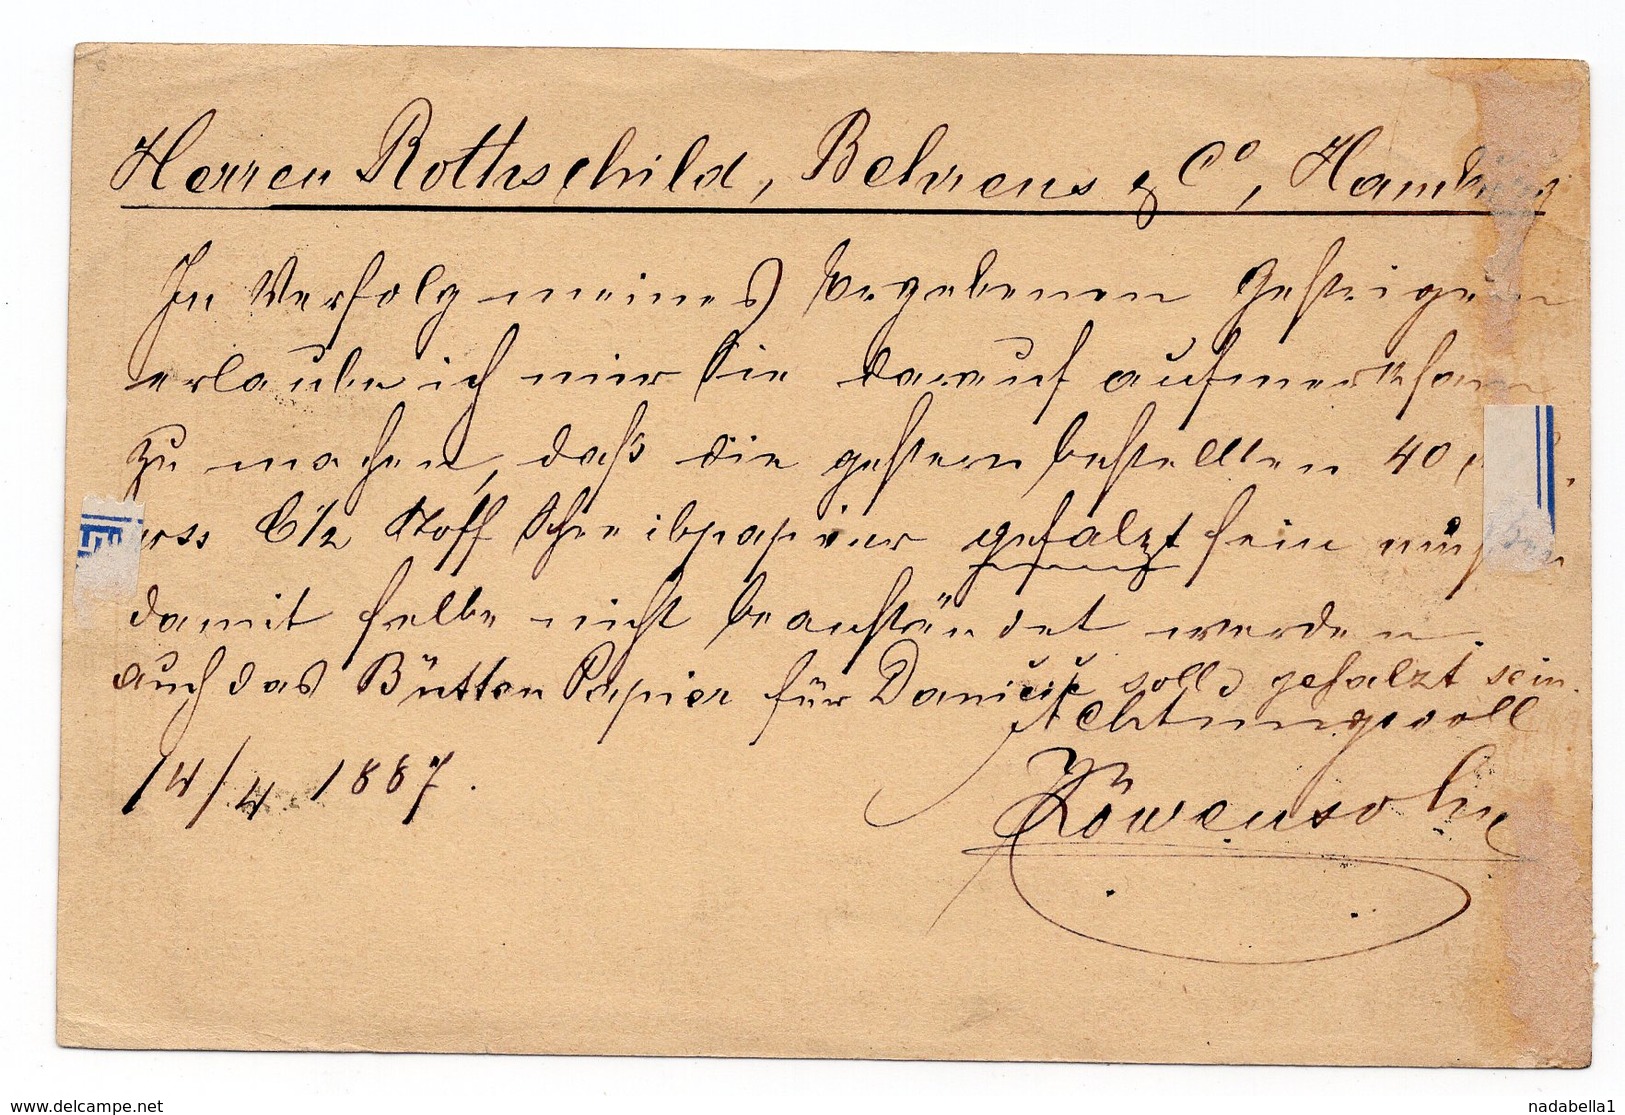 Herren Rothschild, Behrens & Cº, Hamburg
In Verfolg meines ergebenen Gestrigen
erlaube ich mir Sie darauf aufmerksam
zu machen, daß die gestern bestellten 40
6½ Stoff Schreibpapier gefalzt sein müssen
damit selbe nicht beanständet werden
auch das Bütten Papier für Daničić soll gefalzt sein.
Achtungsvoll
14/4 1887.
Löwensohn
www.delcampe.net
nadabella1